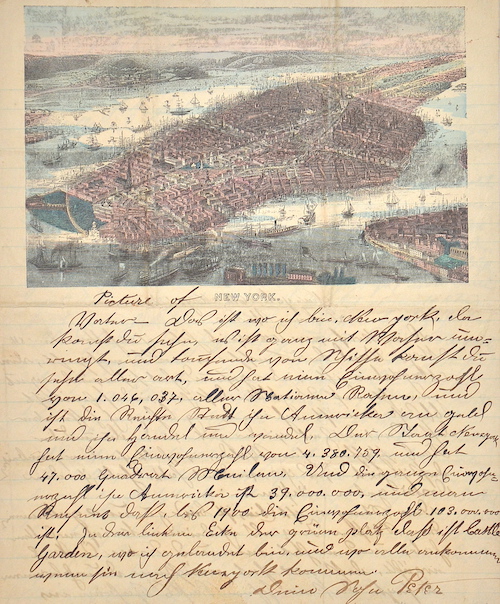 NEW YORK.
Picture of
Vatter Das ist wo ich bin, New york, da
kanst du sehn, es ist ganz mit Wasser um-
ringt, und tausende von Schiffe kanst du
sehn aller art, und hat einen Einwohnerzahl
von 1.046,037, aller Nationen Rasen, und
ist die Reichste Stadt in Amerika an geld
und in handel und wandel. Der Staat Newyor
hat einen Einwohnerzahl von 4.380.759 und hat
47.000 Quadrat Meilen. Und die ganze Einwoh-
nerzahl in Amerika ist 39.000.000, und man
Rechnet daß, bis 1900 die Einwohnerzahl 103.000.000
ist. In der linken Ecke der grüne platz daß ist Castle
Garden, wo ich gelandet bin, und wo alle ankommen
wenn sie nach Newyork kommen.
Dein Sohn Peter